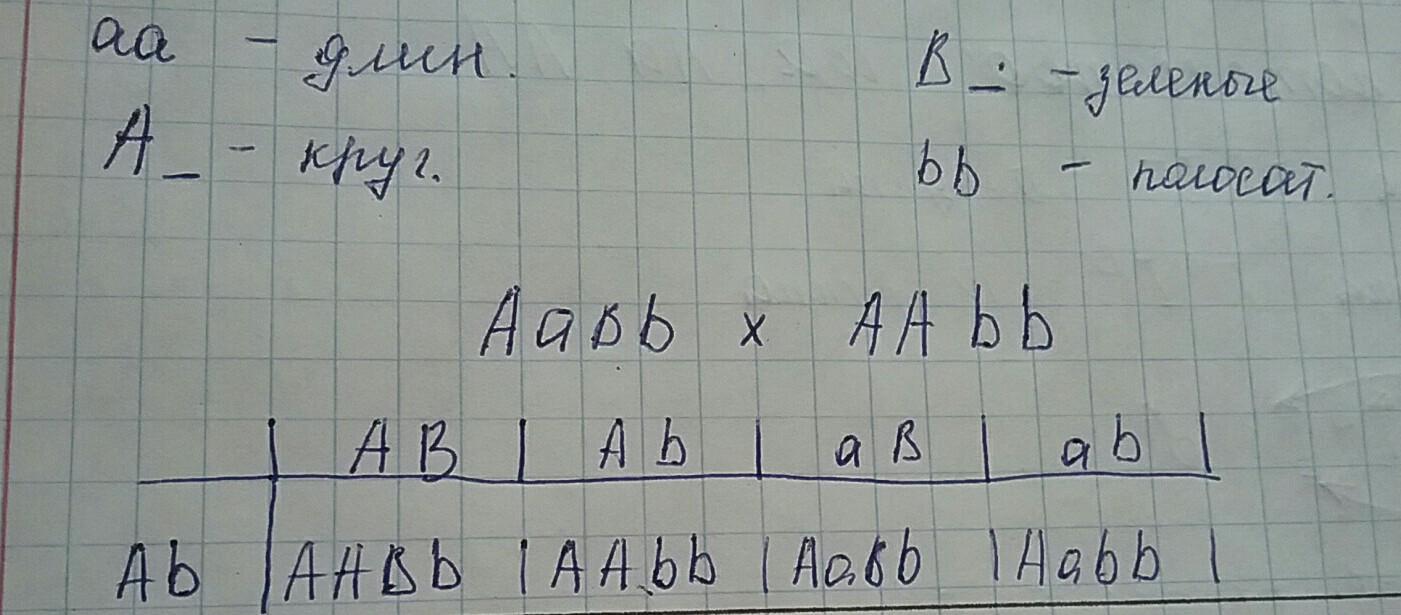 aa - длин. B_. - зеленые
A_ - круг. bb - полосат.
AaBb x AAbb
| AB | Ab | aB | ab |
Ab | AABb | AAbb | AaBb | Aabb |